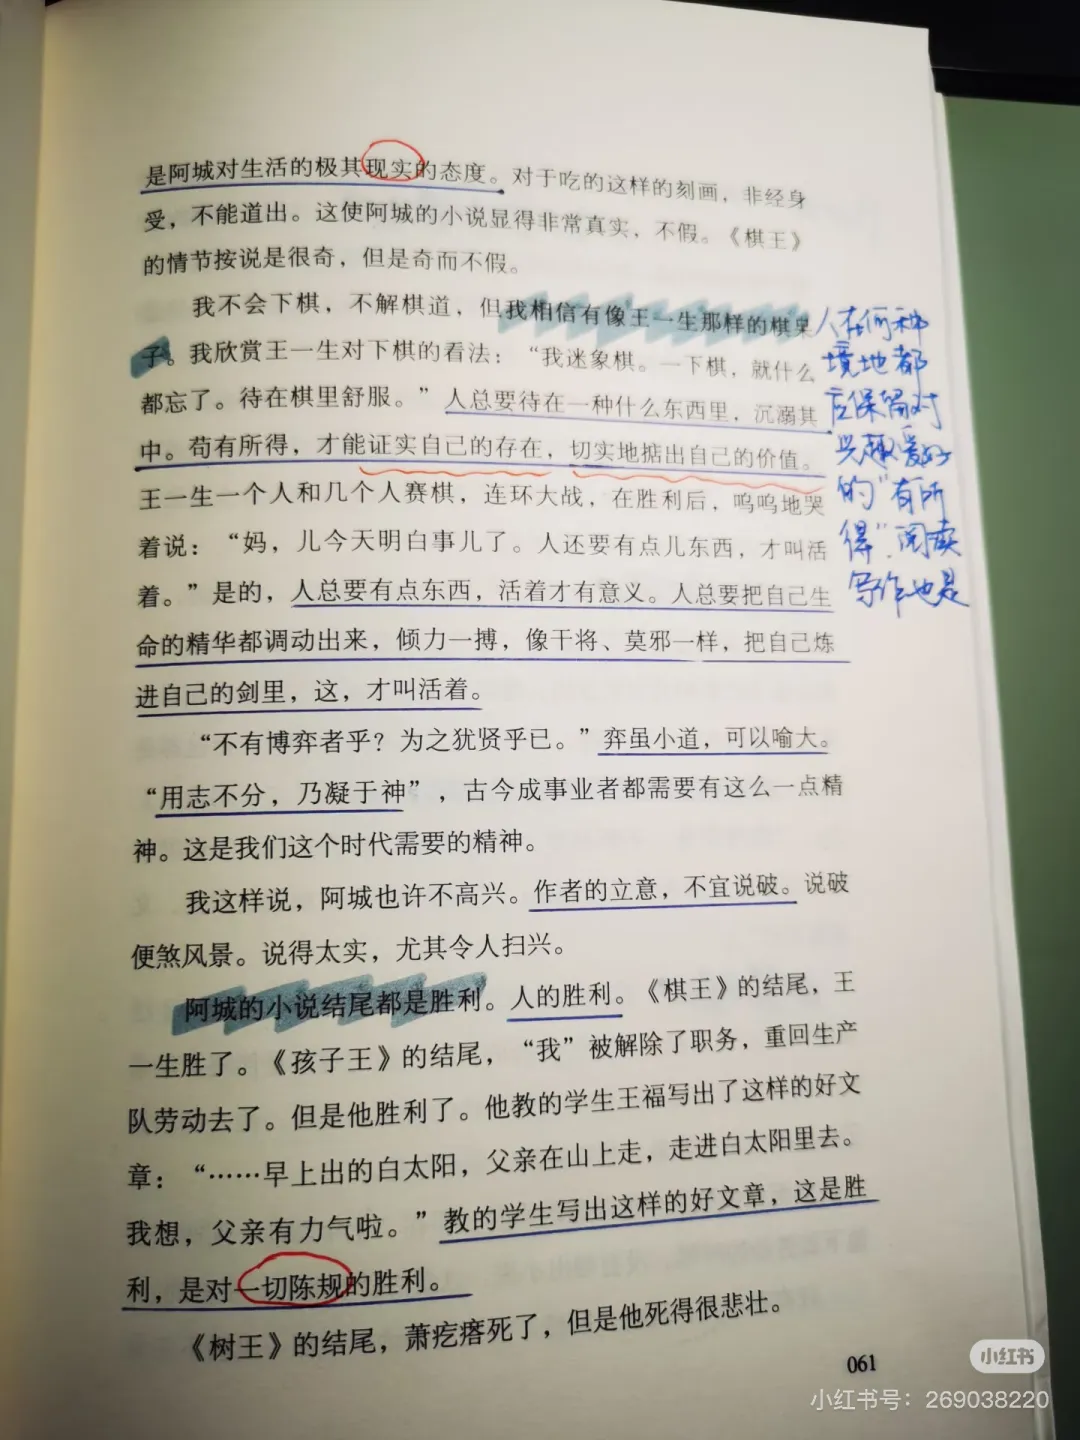 是阿城对生活的极其现实的态度。对于吃的这样的刻画，非经身
受，不能道出。这使阿城的小说显得非常真实，不假。《棋王》
的情节按说是很奇，但是奇而不假。
我不会下棋，不解棋道，但我相信有像王一生那样的棋呆
子。我欣赏王一生对下棋的看法：“我迷象棋。一下棋，就什么
都忘了。待在棋里舒服。”人总要待在一种什么东西里，沉溺其
中。苟有所得，才能证实自己的存在，切实地掂出自己的价值。
王一生一个人和几个人赛棋，连环大战，在胜利后，呜呜地哭
着说：“妈，儿今天明白事儿了。人还要有点儿东西，才叫活
着。”是的，人总要有点东西，活着才有意义。人总要把自己生
命的精华都调动出来，倾力一搏，像干将、莫邪一样，把自己炼
进自己的剑里，这，才叫活着。
“不有博弈者乎？为之犹贤乎已。”弈虽小道，可以喻大。
“用志不分，乃凝于神”，古今成事业者都需要有这么一点精
神。这是我们这个时代需要的精神。
我这样说，阿城也许不高兴。作者的立意，不宜说破。说破
便煞风景。说得太实，尤其令人扫兴。
阿城的小说结尾都是胜利。人的胜利。《棋王》的结尾，王
一生胜了。《孩子王》的结尾，“我”被解除了职务，重回生产
队劳动去了。但是他胜利了。他教的学生王福写出了这样的好文
章：“……早上出的白太阳，父亲在山上走，走进白太阳里去。
我想，父亲有力气啦。”教的学生写出这样的好文章，这是胜
利，是对一切陈规的胜利。
《树王》的结尾，萧疙瘩死了，但是他死得很悲壮。
061
人在何种
境地都
应保留对
兴趣爱好
的“有所
得”.阅读
写作也是
小红书
小红书号：269038220